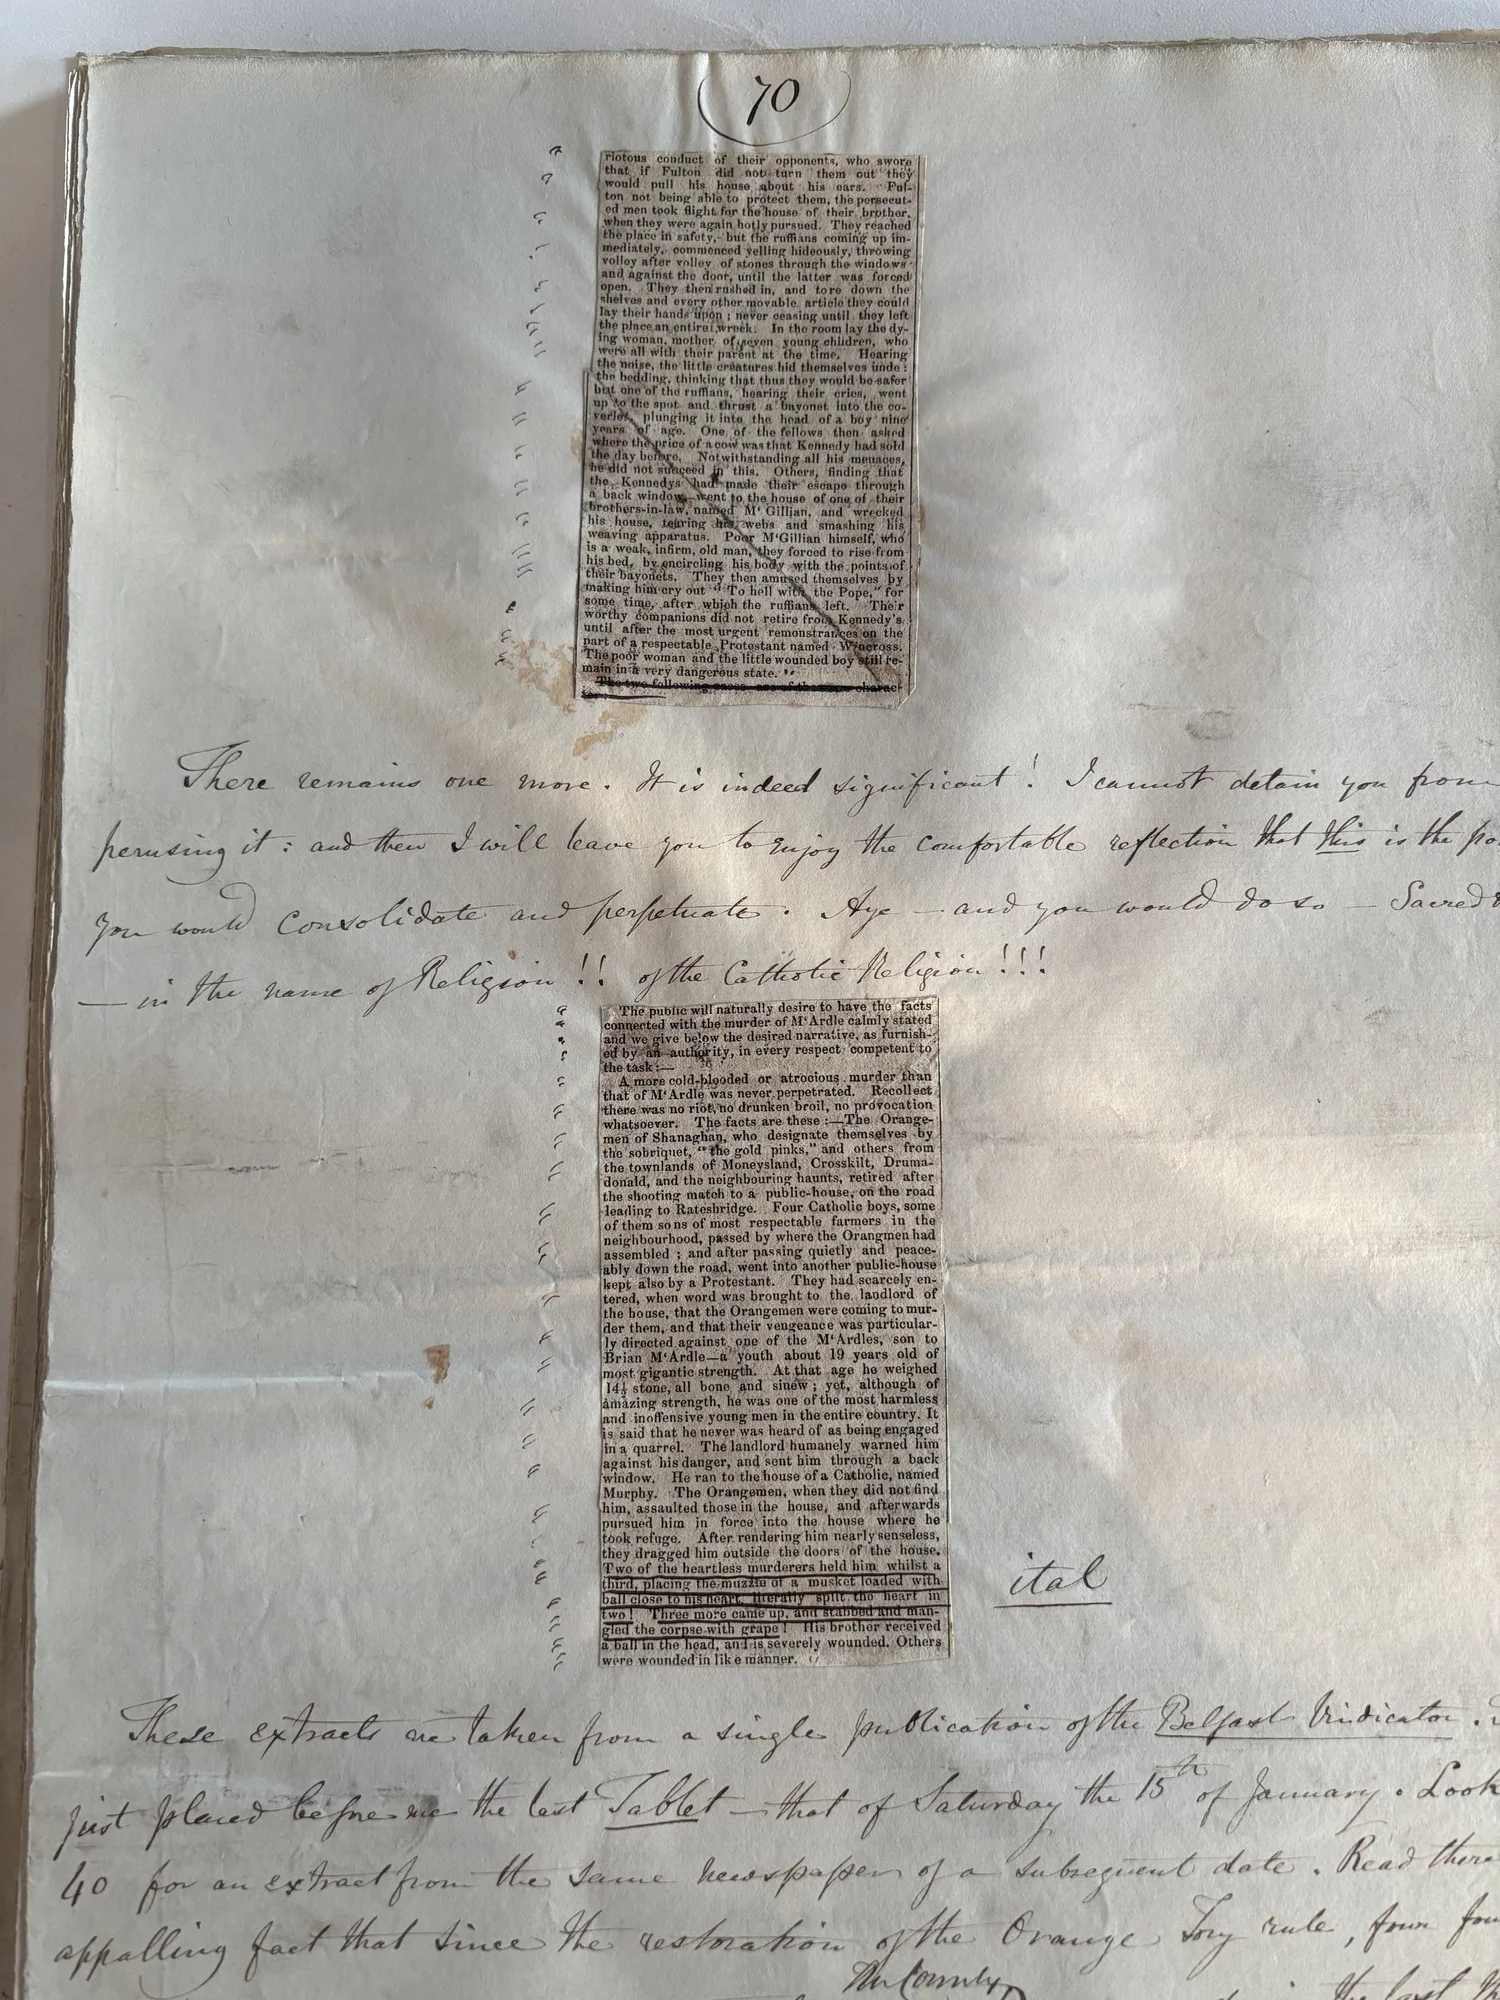 (70)
riotous conduct of their opponents, who swore
that if Fulton did not turn them out they
would pull his house about his ears. Ful-
ton not being able to protect them, the persecut-
ed men took flight for the house of their brother,
when they were again hotly pursued. They reached
the place in safety, but the ruffians coming up im-
mediately, commenced yelling hideously, throwing
volley after volley of stones through the windows
and against the door, until the latter was forced
open. They then rushed in, and tore down the
shelves and every other movable article they could
lay their hands upon ; never ceasing until they left
the place an entire wreck. In the room lay the dy-
ing woman, mother of seven young children, who
were all with their parent at the time. Hearing
the noise, the little creatures hid themselves unde:
the bedding, thinking that thus they would be safer
but one of the ruffians, hearing their cries, went
up to the spot and thrust a bayonet into the co-
verlet, plunging it into the head of a boy nine
years of age. One of the fellows then asked
where the price of a cow was that Kennedy had sold
the day before. Notwithstanding all his menaces,
he did not succeed in this. Others, finding that
the Kennedys had made their escape through
a back window, went to the house of one of their
brothers-in-law, named M'Gillian, and wrecked
his house, tearing his webs and smashing his
weaving apparatus. Poor M'Gillian himself, who
is a weak, infirm, old man, they forced to rise from
his bed, by encircling his body with the points of
their bayonets. They then amused themselves by
making him cry out "To hell with the Pope," for
some time, after which the ruffians left. Their
worthy companions did not retire from Kennedy's
until after the most urgent remonstrances on the
part of a respectable Protestant named Wincross.
The poor woman and the little wounded boy still re-
main in a very dangerous state. "
The two following cases are of the same charac-
ter :
There remains one more. It is indeed significant! I cannot detain you from
perusing it : and then I will leave you to enjoy the comfortable reflection that this is the
you would consolidate and perpetuate. Aye — and you would do so — Sacred
— in the name of Religion !! of the Catholic Religion !!!
The public will naturally desire to have the facts
connected with the murder of M'Ardle calmly stated
and we give below the desired narrative, as furnish-
ed by an authority, in every respect competent to
the task :—
A more cold-blooded or atrocious murder than
that of M'Ardle was never perpetrated. Recollect
there was no riot, no drunken broil, no provocation
whatsoever. The facts are these :—The Orange-
men of Shanaghan, who designate themselves by
the sobriquet, "the gold pinks," and others from
the townlands of Moneysland, Crosskilt, Druma-
donald, and the neighbouring haunts, retired after
the shooting match to a public-house, on the road
leading to Ratesbridge. Four Catholic boys, some
of them sons of most respectable farmers in the
neighbourhood, passed by where the Orangmen had
assembled ; and after passing quietly and peace-
ably down the road, went into another public-house
kept also by a Protestant. They had scarcely en-
tered, when word was brought to the landlord of
the house, that the Orangemen were coming to mur-
der them, and that their vengeance was particular-
ly directed against one of the M'Ardles, son to
Brian M'Ardle—a youth about 19 years old of
most gigantic strength. At that age he weighed
14½ stone, all bone and sinew ; yet, although of
amazing strength, he was one of the most harmless
and inoffensive young men in the entire country. It
is said that he never was heard of as being engaged
in a quarrel. The landlord humanely warned him
against his danger, and sent him through a back
window. He ran to the house of a Catholic, named
Murphy. The Orangemen, when they did not find
him, assaulted those in the house, and afterwards
pursued him in force into the house where he
took refuge. After rendering him nearly senseless,
they dragged him outside the doors of the house.
Two of the heartless murderers held him whilst a
third, placing the muzzle of a musket loaded with
ball close to his heart, literally split the heart in
two! Three more came up, and stabbed and man-
gled the corpse with grape! His brother received
a ball in the head, and is severely wounded. Others
were wounded in like manner. "
ital
These extracts are taken from a single publication of the Belfast Vindicator.
just placed before me the last Tablet — that of Saturday the 15th of January. Look
40 for an extract from the same newspaper of a subsequent date. Read there
appalling fact that since the restoration of the Orange Tory rule, four
the County
in the last